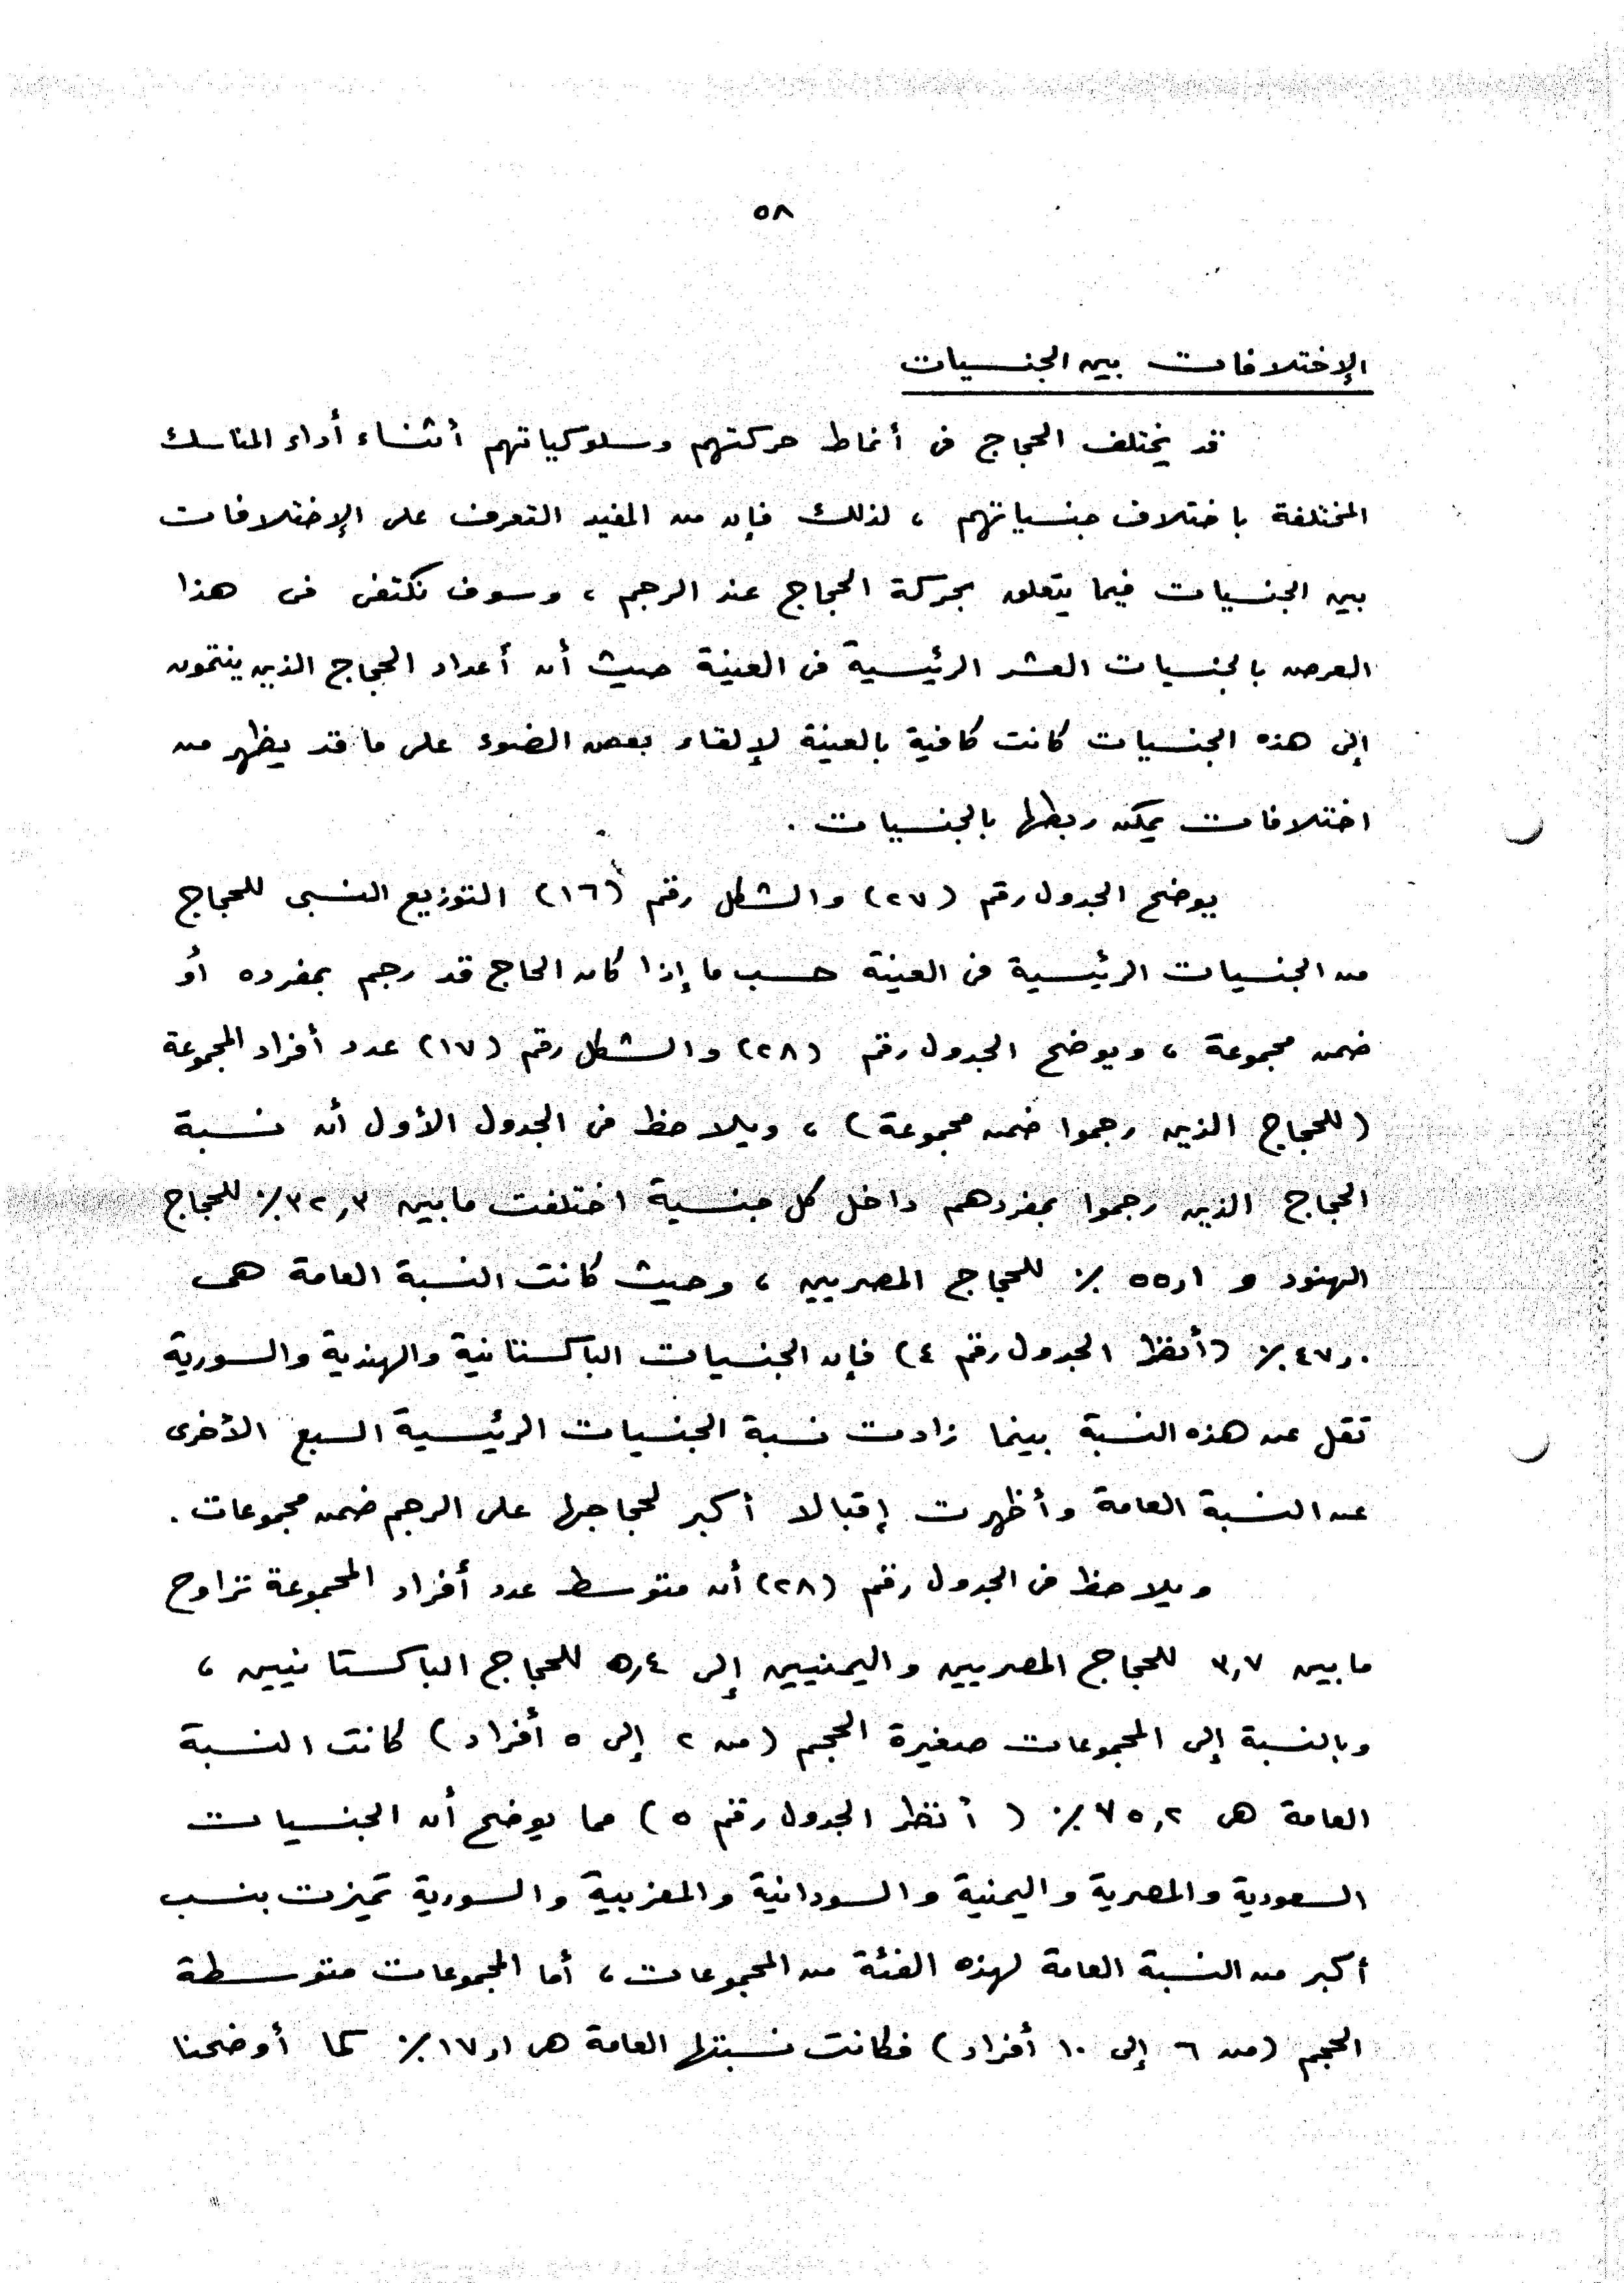 ٥٨
الإختلافات بين الجنسيات
قد يختلف الحجاج فى أنماط حركتهم وسلوكياتهم أثناء أداء المناسك
المختلفة باختلاف جنسياتهم ، لذلك فإن من المفيد التعرف على الإختلافات
بين الجنسيات فيما يتعلق بحركة الحجاج عند الرجم ، وسوف نكتفى فى هذا
العرض بالجنسيات العشر الرئيسية فى العينة حيث أن أعداد الحجاج الذين ينتمون
إلى هذه الجنسيات كانت كافية بالعينة لإلقاء بعض الضوء على ما قد يظهر من
اختلافات يمكن ربطها بالجنسيات .
يوضح الجدول رقم (٢٧) والشكل رقم (١٦) التوزيع النسبى للحجاج
من الجنسيات الرئيسية فى العينة حسب ما إذا كان الحاج قد رجم بمفرده أو
ضمن مجموعة ، ويوضح الجدول رقم (٢٨) والشكل رقم (١٧) عدد أفراد المجموعة
(للحجاج الذين رجموا ضمن مجموعة) ، ويلاحظ فى الجدول الأول أن نسبة
الحجاج الذين رجموا بمفردهم داخل كل جنسية اختلفت مابين ٣٢,٣٪ للحجاج
الهنود و ٥٥,١ ٪ للحجاج المصريين ، وحيث كانت النسبة العامة هى
٤٧,٠٪ (أنظر الجدول رقم ٤) فإن الجنسيات الباكستانية والهندية والسورية
تقل عن هذه النسبة بينما زادت نسبة الجنسيات الرئيسية السبع الأخرى
عن النسبة العامة وأظهرت إقبالا أكبر لحجاجها على الرجم ضمن مجموعات .
ويلاحظ فى الجدول رقم (٢٨) أن متوسط عدد أفراد المجموعة تراوح
مابين ٣,٧ للحجاج المصريين واليمنيين إلى ٥,٤ للحجاج الباكستانيين ،
وبالنسبة إلى المجموعات صغيرة الحجم (من ٢ إلى ٥ أفراد) كانت النسبة
العامة هى ٧٥,٢٪ (أنظر الجدول رقم ٥) مما يوضح أن الجنسيات
السعودية والمصرية واليمنية والسودانية والمغربية والسورية تميزت بنسب
أكبر من النسبة العامة لهذه الفئة من المجموعات ، أما المجموعات متوسطة
الحجم (من ٦ إلى ١٠ أفراد) فكانت نسبتها العامة هى ١٧,١٪ كما أوضحنا